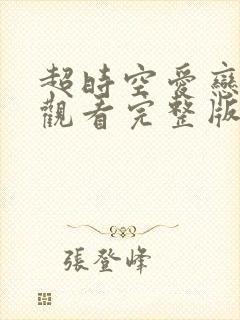 超時空愛戀
觀看完整版
張登峰